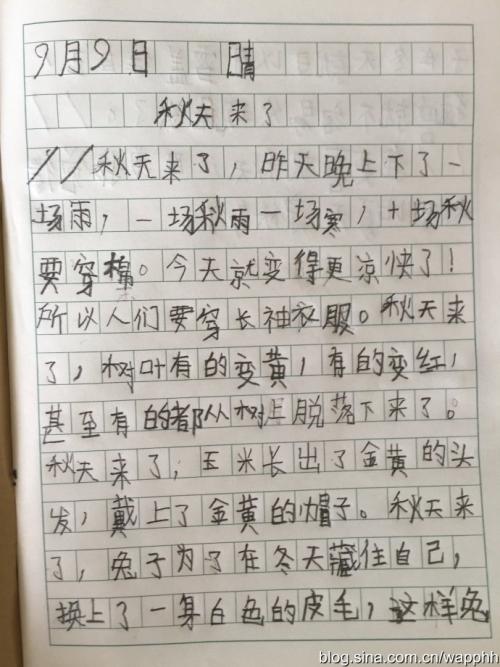 9月9日 晴
秋天来了
//秋天来了，昨天晚上下了一
场雨，一场秋雨一场寒，十场秋
要穿棉。今天就变得更凉快了！
所以人们要穿长袖衣服。秋天来
了，树叶有的变黄，有的变红，
甚至有的都从树上脱落下来了。
秋天来了；玉米长出了金黄的头
发，戴上了金黄的帽子。秋天来
了，兔子为了在冬天藏住自己，
换上了一身白色的皮毛，这样兔
blog.sina.com.cn/wapphh